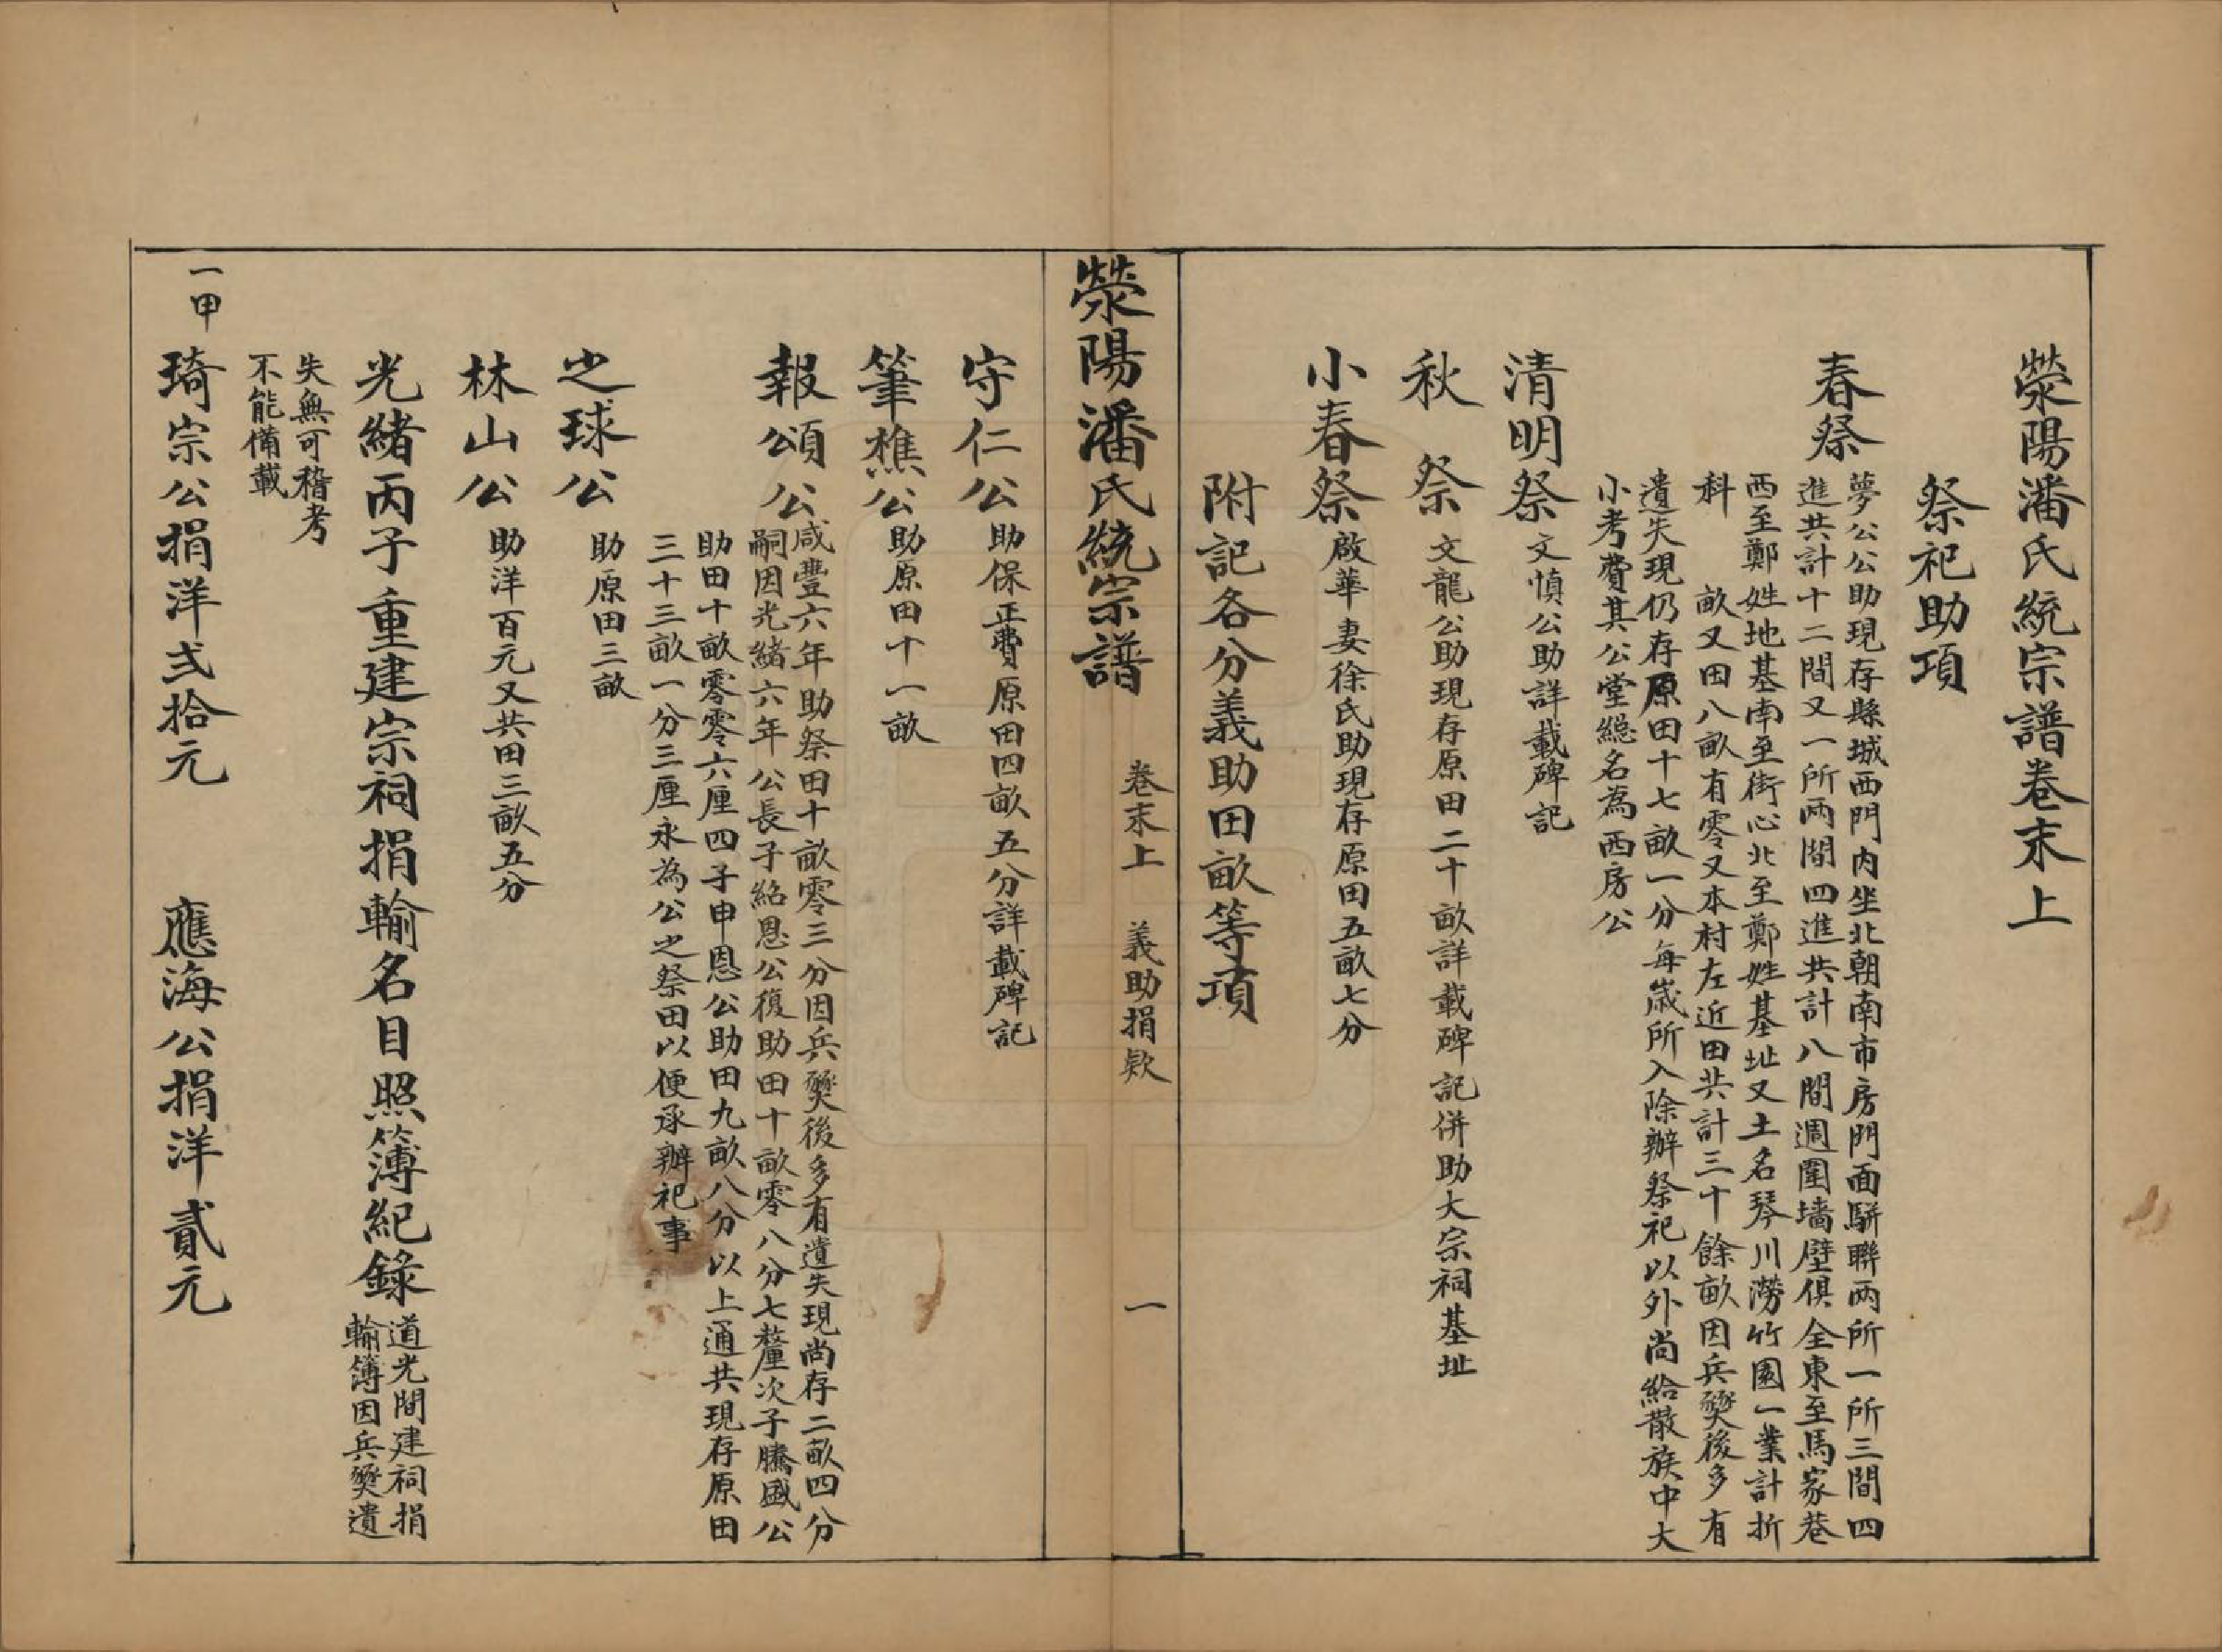 滎陽潘氏統宗譜卷末上
祭祀助項
春祭
夢公公助現存縣城西門內坐北朝南市房門面駢聯兩所一所三間四
進共計十二間又一所兩間四進共計八間週圍墻壁俱全東至馬家巷
西至鄭姓地基南至街心北至鄭姓基址又土名琴川澇竹園一業計折
科　畝又田八畝有零又本村左近田共計三十餘畝因兵燹後多有
遺失現仍存原田十七畝一分每歲所入除辦祭祀以外尚給散族中大
小考費其公堂總名為西房公
清明祭 文慎公助詳載碑記
秋祭 文龍公助現存原田二十畝詳載碑記併助大宗祠基址
小春祭 啟華妻徐氏助現存原田五畝七分
附記各分義助田畝等項
滎陽潘氏統宗譜 卷末上 義助捐款 一
守仁公 助保正費原田四畝五分詳載碑記
筆樵公 助原田十一畝
報頌公 咸豐六年助祭田十畝零三分因兵燹後多有遺失現尚存二畝四分
嗣因光緒六年公長子紹恩公復助田十畝零八分七釐次子騰國公
助田十畝零零六厘四子申恩公助田九畝八分以上通共現存原田
三十三畝一分三厘永為公之祭田以便承辦祀事
之球公 助原田三畝
林山公 助洋百元又共田三畝五分
光緒丙子重建宗祠捐輸名目照簿紀錄 道光間建祠捐
輸簿因兵燹遺
失無可稽考
不能備載
一甲 琦宗公捐洋弍拾元 應海公捐洋貳元